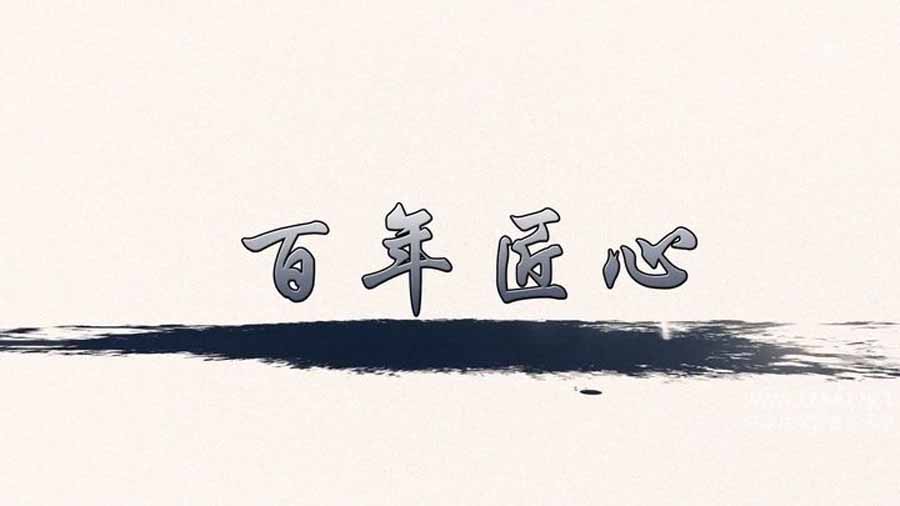 百年匠心